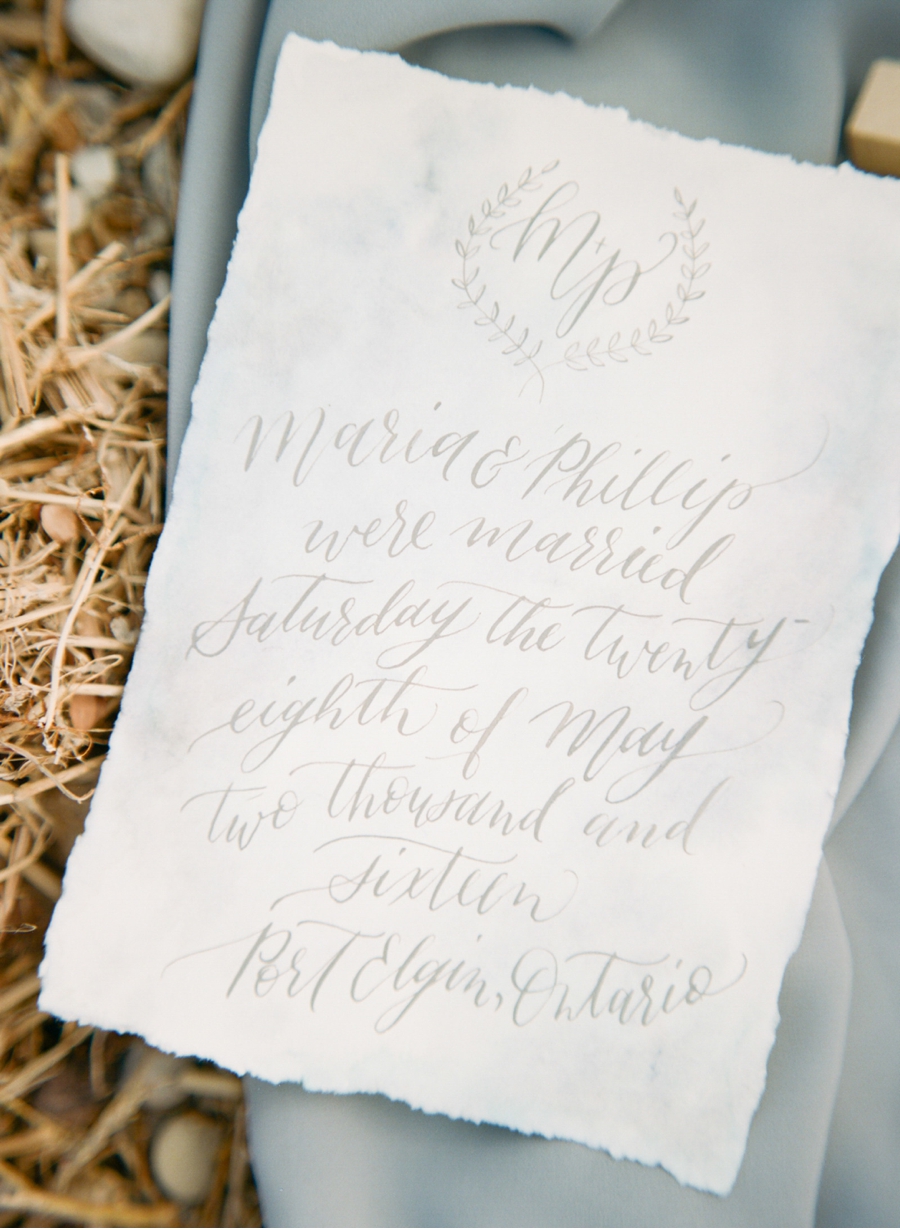 m+p
Maria & Phillip
were married
Saturday the twenty-
eighth of May
two thousand and
sixteen
Port Elgin, Ontario